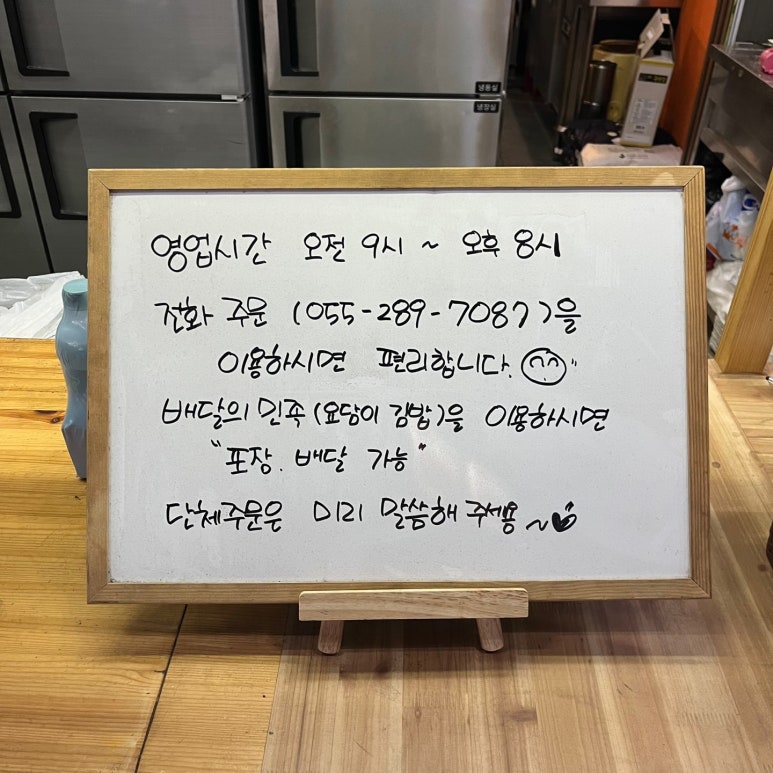 냉동실
냉장실
영업시간 오전 9시 ~ 오후 8시
전화 주문 (055-289-7087)을
이용하시면 편리합니다.
배달의 민족(요담이 김밥)을 이용하시면
"포장. 배달 가능"
단체주문은 미리 말씀해 주세용~